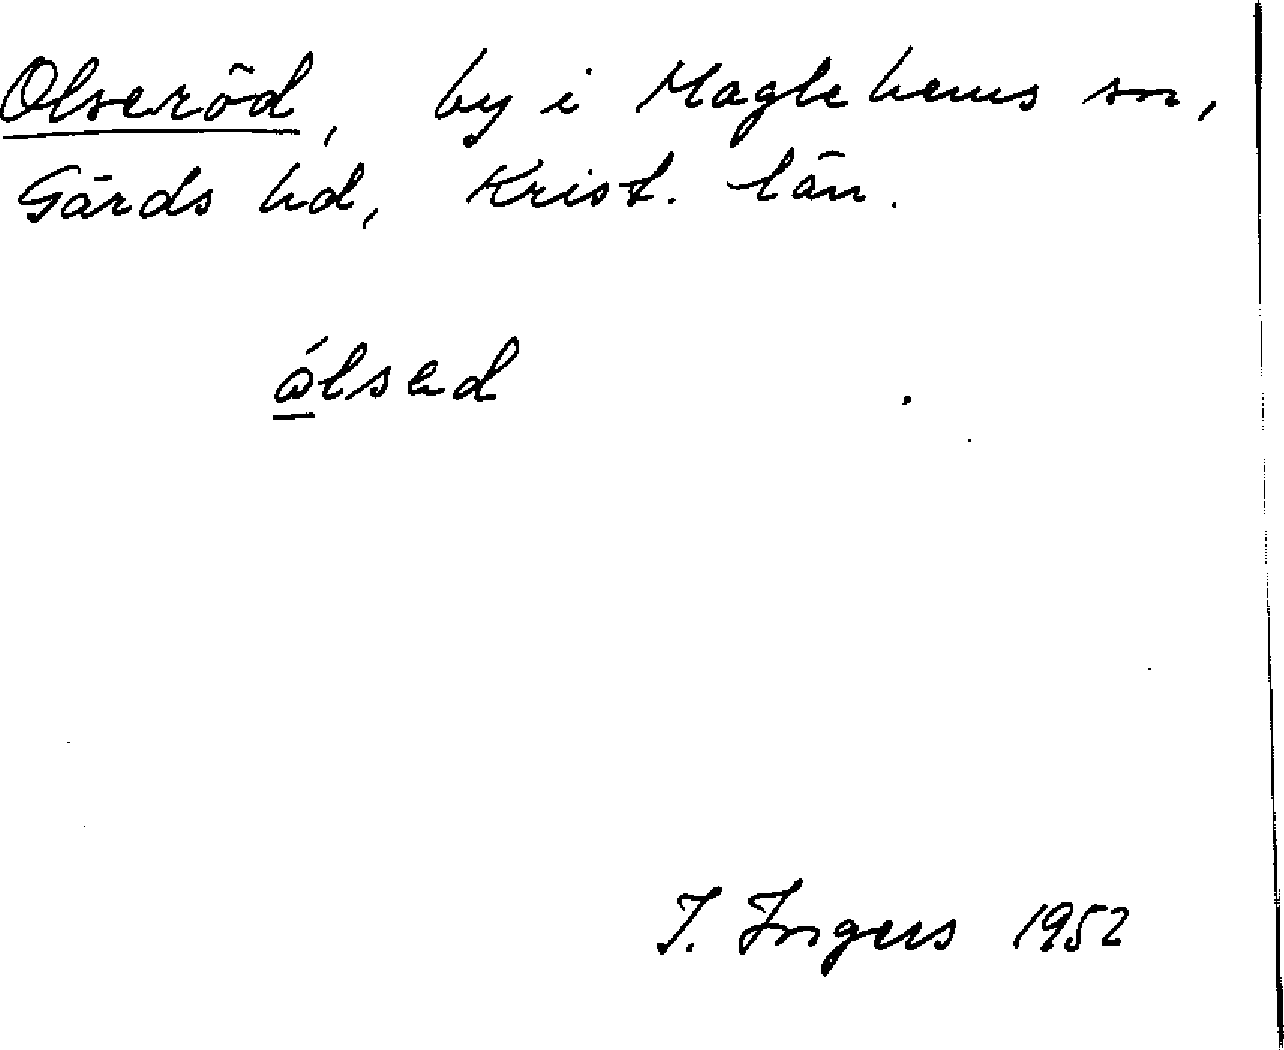 Olseröd, by i Maglehems sn,
Gärds hd, Krist. län.
ólsed
I. Ingers 1952